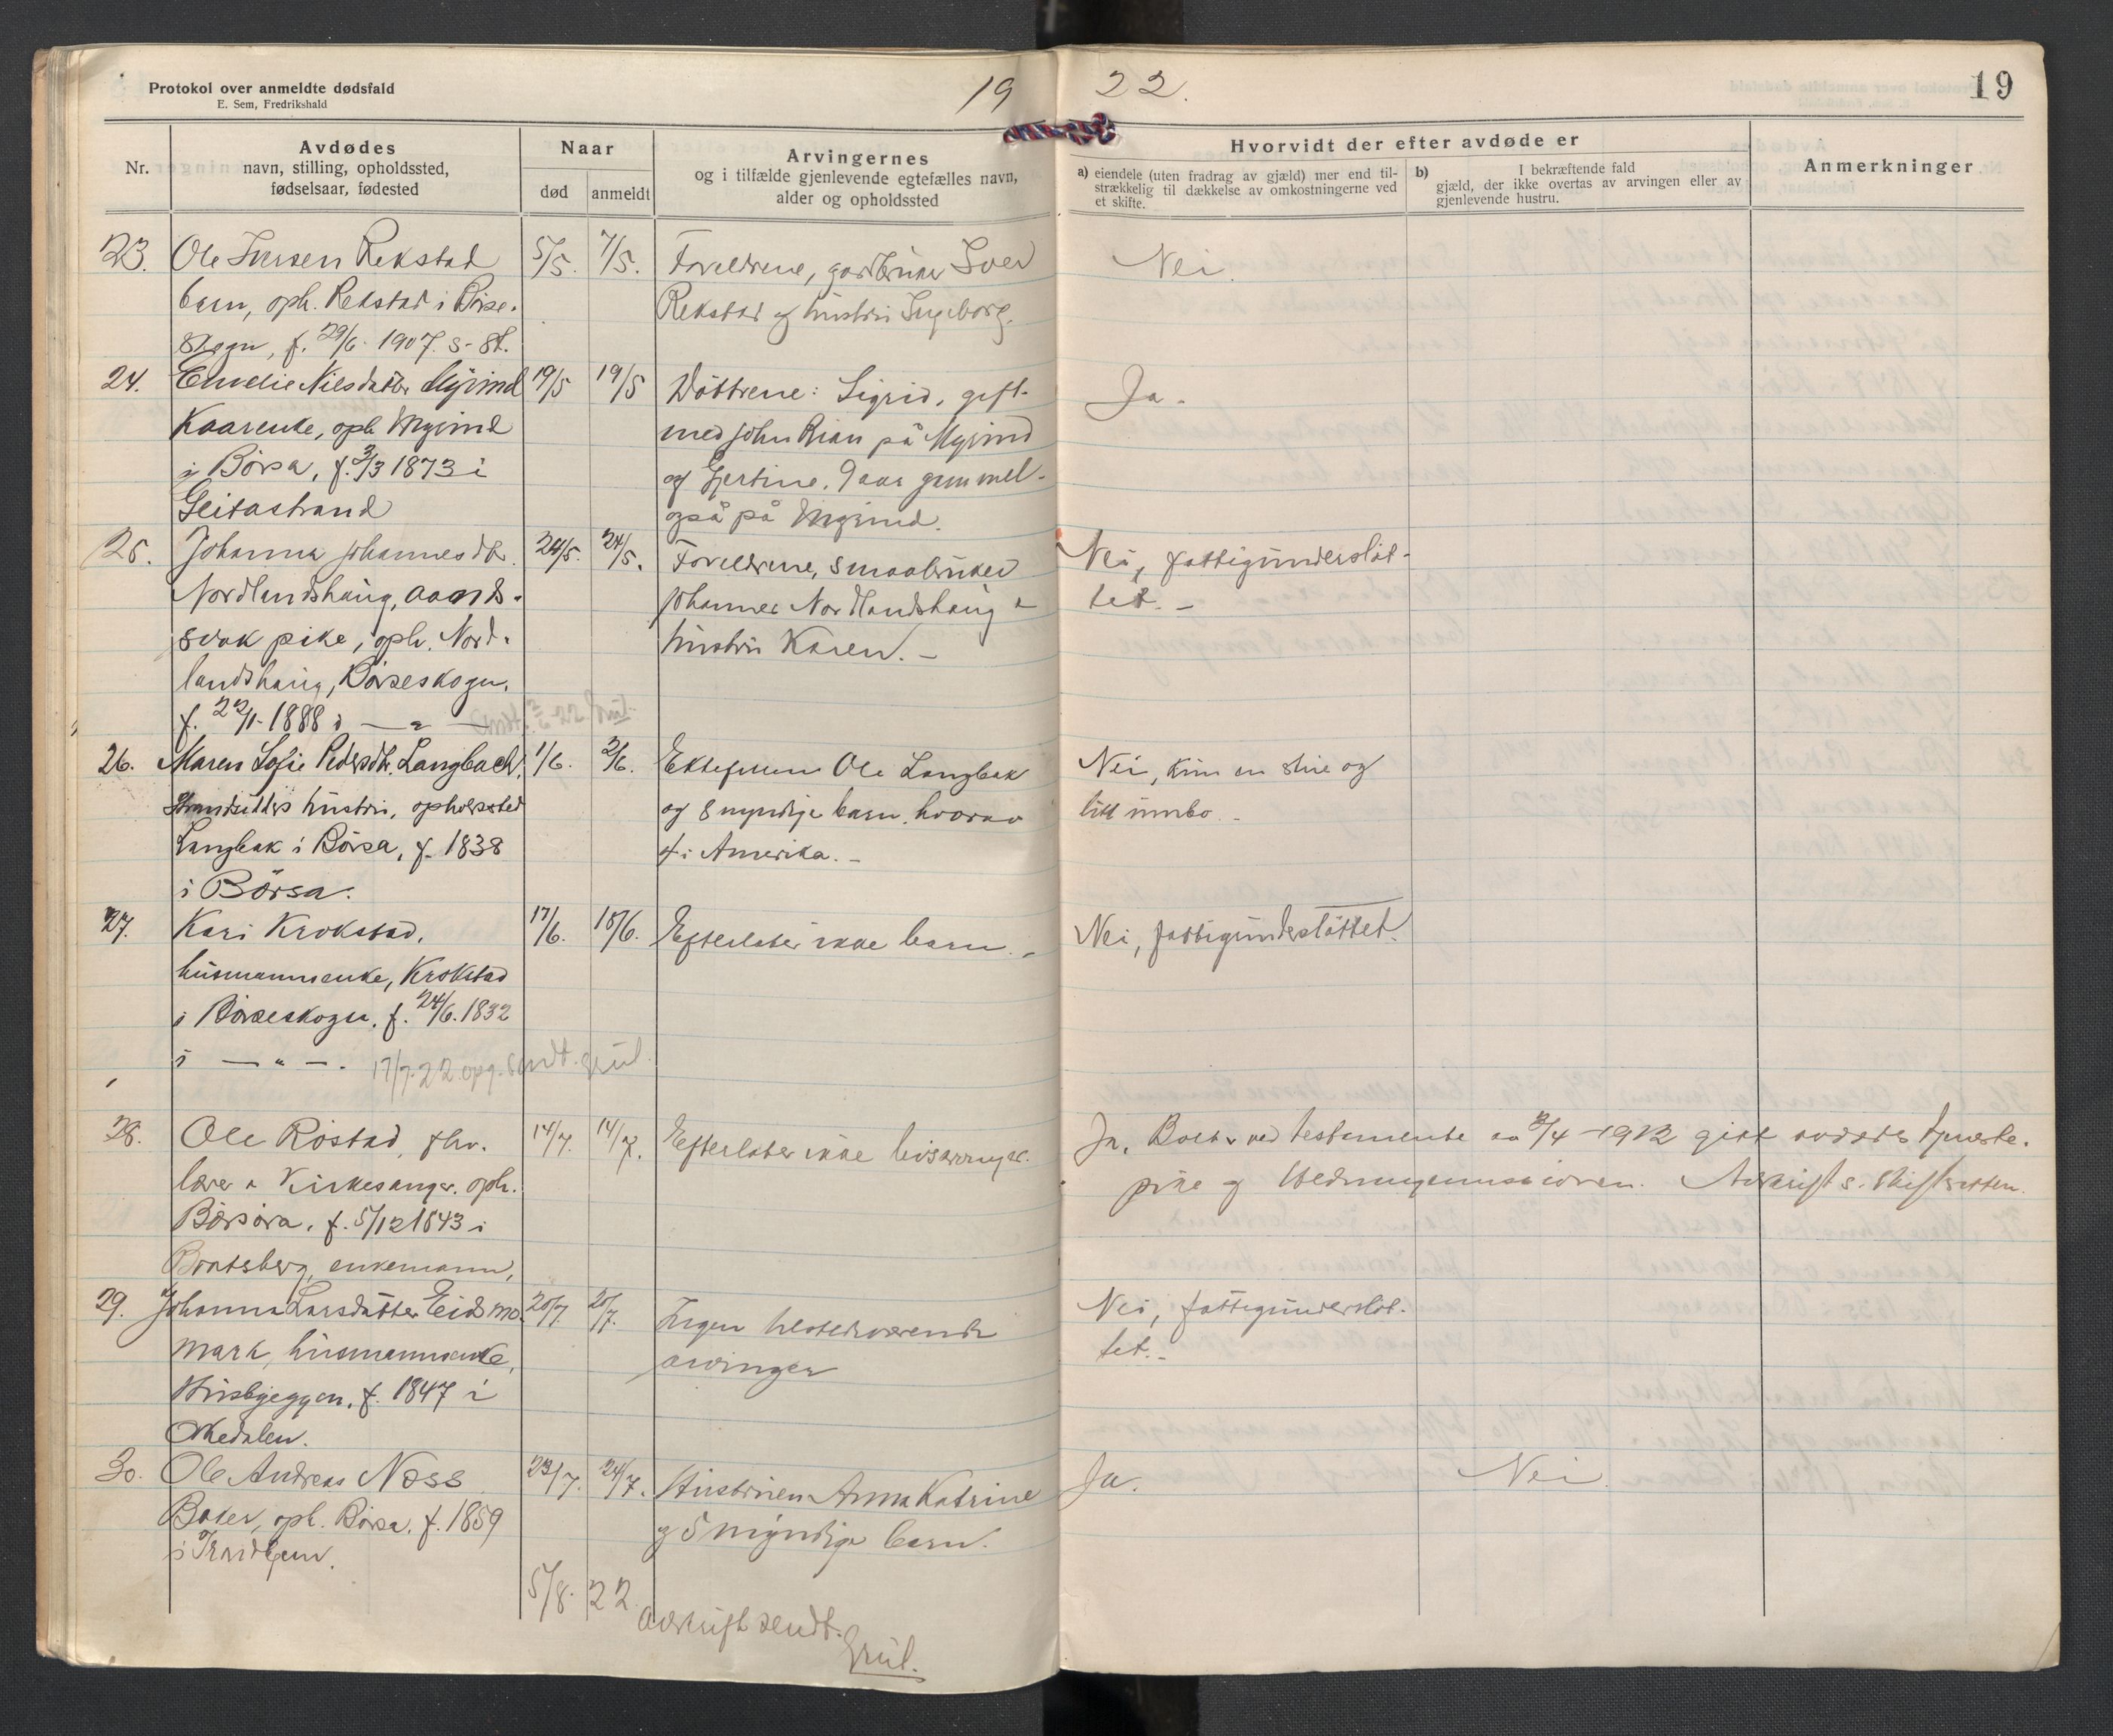 Protokol over anmeldte dødsfald
E. Sem, Fredrikshald
19 22.
19
Nr.
Avdødes
navn, stilling, opholdssted,
fødselsaar, fødested
Naar
død
anmeldt
Arvingernes
og i tilfælde gjenlevende egtefælles navn,
alder og opholdssted
Hvorvidt der efter avdøde er
a) eiendele (uten fradrag av gjæld) mer end til-
strækkelig til dækkelse av omkostningerne ved
et skifte.
b) I bekræftende fald
gjæld, der ikke overtas av arvingen eller av
gjenlevende hustru.
Anmerkninger
23. Ole Iversen Rekstad 5/5. 7/5. Foreldrene, gardbruker Iver Nei.
barn, oph. Rekstad i Børse- Rekstad og hustru Ingeborg.
skogn, f. 29/6 1907. s. st.
24. Nilsdatter Myrind 19/5 19/5 Døttrene: Sigrid, gift- Ja.
Kaarenke, oph Myrind med John Rian på Myrind
i Börsa, f. 3/3 1873 i og 9 aar gammel-
Geitastrand også på Myrind.
25. Johanna Johannesdtr. 24/5. 24/5. Foreldrene, smaabruker Nei, fattigunderstöt-
Nordlandshaug, aands- Johannes Nordlandshaug & tet. -
svak pike, oph. Nord- hustru Karen. -
landshaug, Börseskogn.
f. 22/1- 1888 i — " —
26. Maren Sofie Pedersdtr. Langbach, 1/6. 2/6. Ektefellen Ole Langbak Nei, kun en stue og
Strandsidders hustru, opholdssted og 8 myndige barn, hvorav litt innbo. -
Langbak i Börsa, f. 1838 4 i Amerika. -
i Börsa.
27. Kari Krokstad, 17/6. 18/6. Efterlater ikke barn. - Nei, fattigunderstöttet.
husmannsenke, Krokstad
i Börseskogn. f. 24/6. 1832
i — " —. 17/7. 22. opg. sendt. Grül.
28. Ole Röstad, fhv. 14/7. 14/7. Efterlater ikke livsarvinger. Ja. Boet ved testamente av 2/4 - 1912 gitt avdødes tjeneste-
lærer & Kirkesanger. oph. pike og Hedningemissionen. Avskrift s. skifteretten.
Börsöra. f. 5/12 1843 i
Bratsberg, enkemann,
29. Johanna Larsdatter Eidsmo- 20/7. 20/7. Ingen tilstedeværende Nei, fattigunderstöt-
mark, husmannsenke, arvinger tet. -
Husbyeggen. f. 1847 i
30. Ole Andreas Næss 23/7. 24/7. Hustruen Anna Katrine Ja. Nei.
Baker, oph. Börsa. f. 1859 og 5 myndige barn.
i Trondhjem.
5/8. 22. avskrift sendt.
Grül.